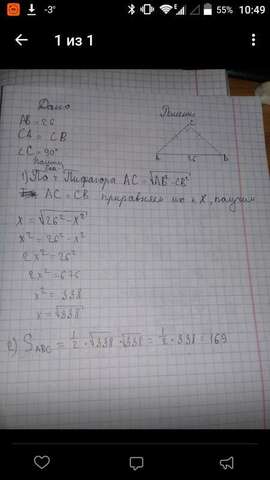 -3° 55% 10:49
1 из 1
Дано
Решение
AB = 26
CA = CB
∠C = 90°
C
A 26 B
1) По т Пифагора AC = √AB² - CB²
AC = CB приравняем их к X, получим
x = √26² - x²
x² = 26² - x²
2x² = 26²
2x² = 676
x² = 338
x = √338
2) S ABC = 1/2 · √338 · √338 = 1/2 · 338 = 169